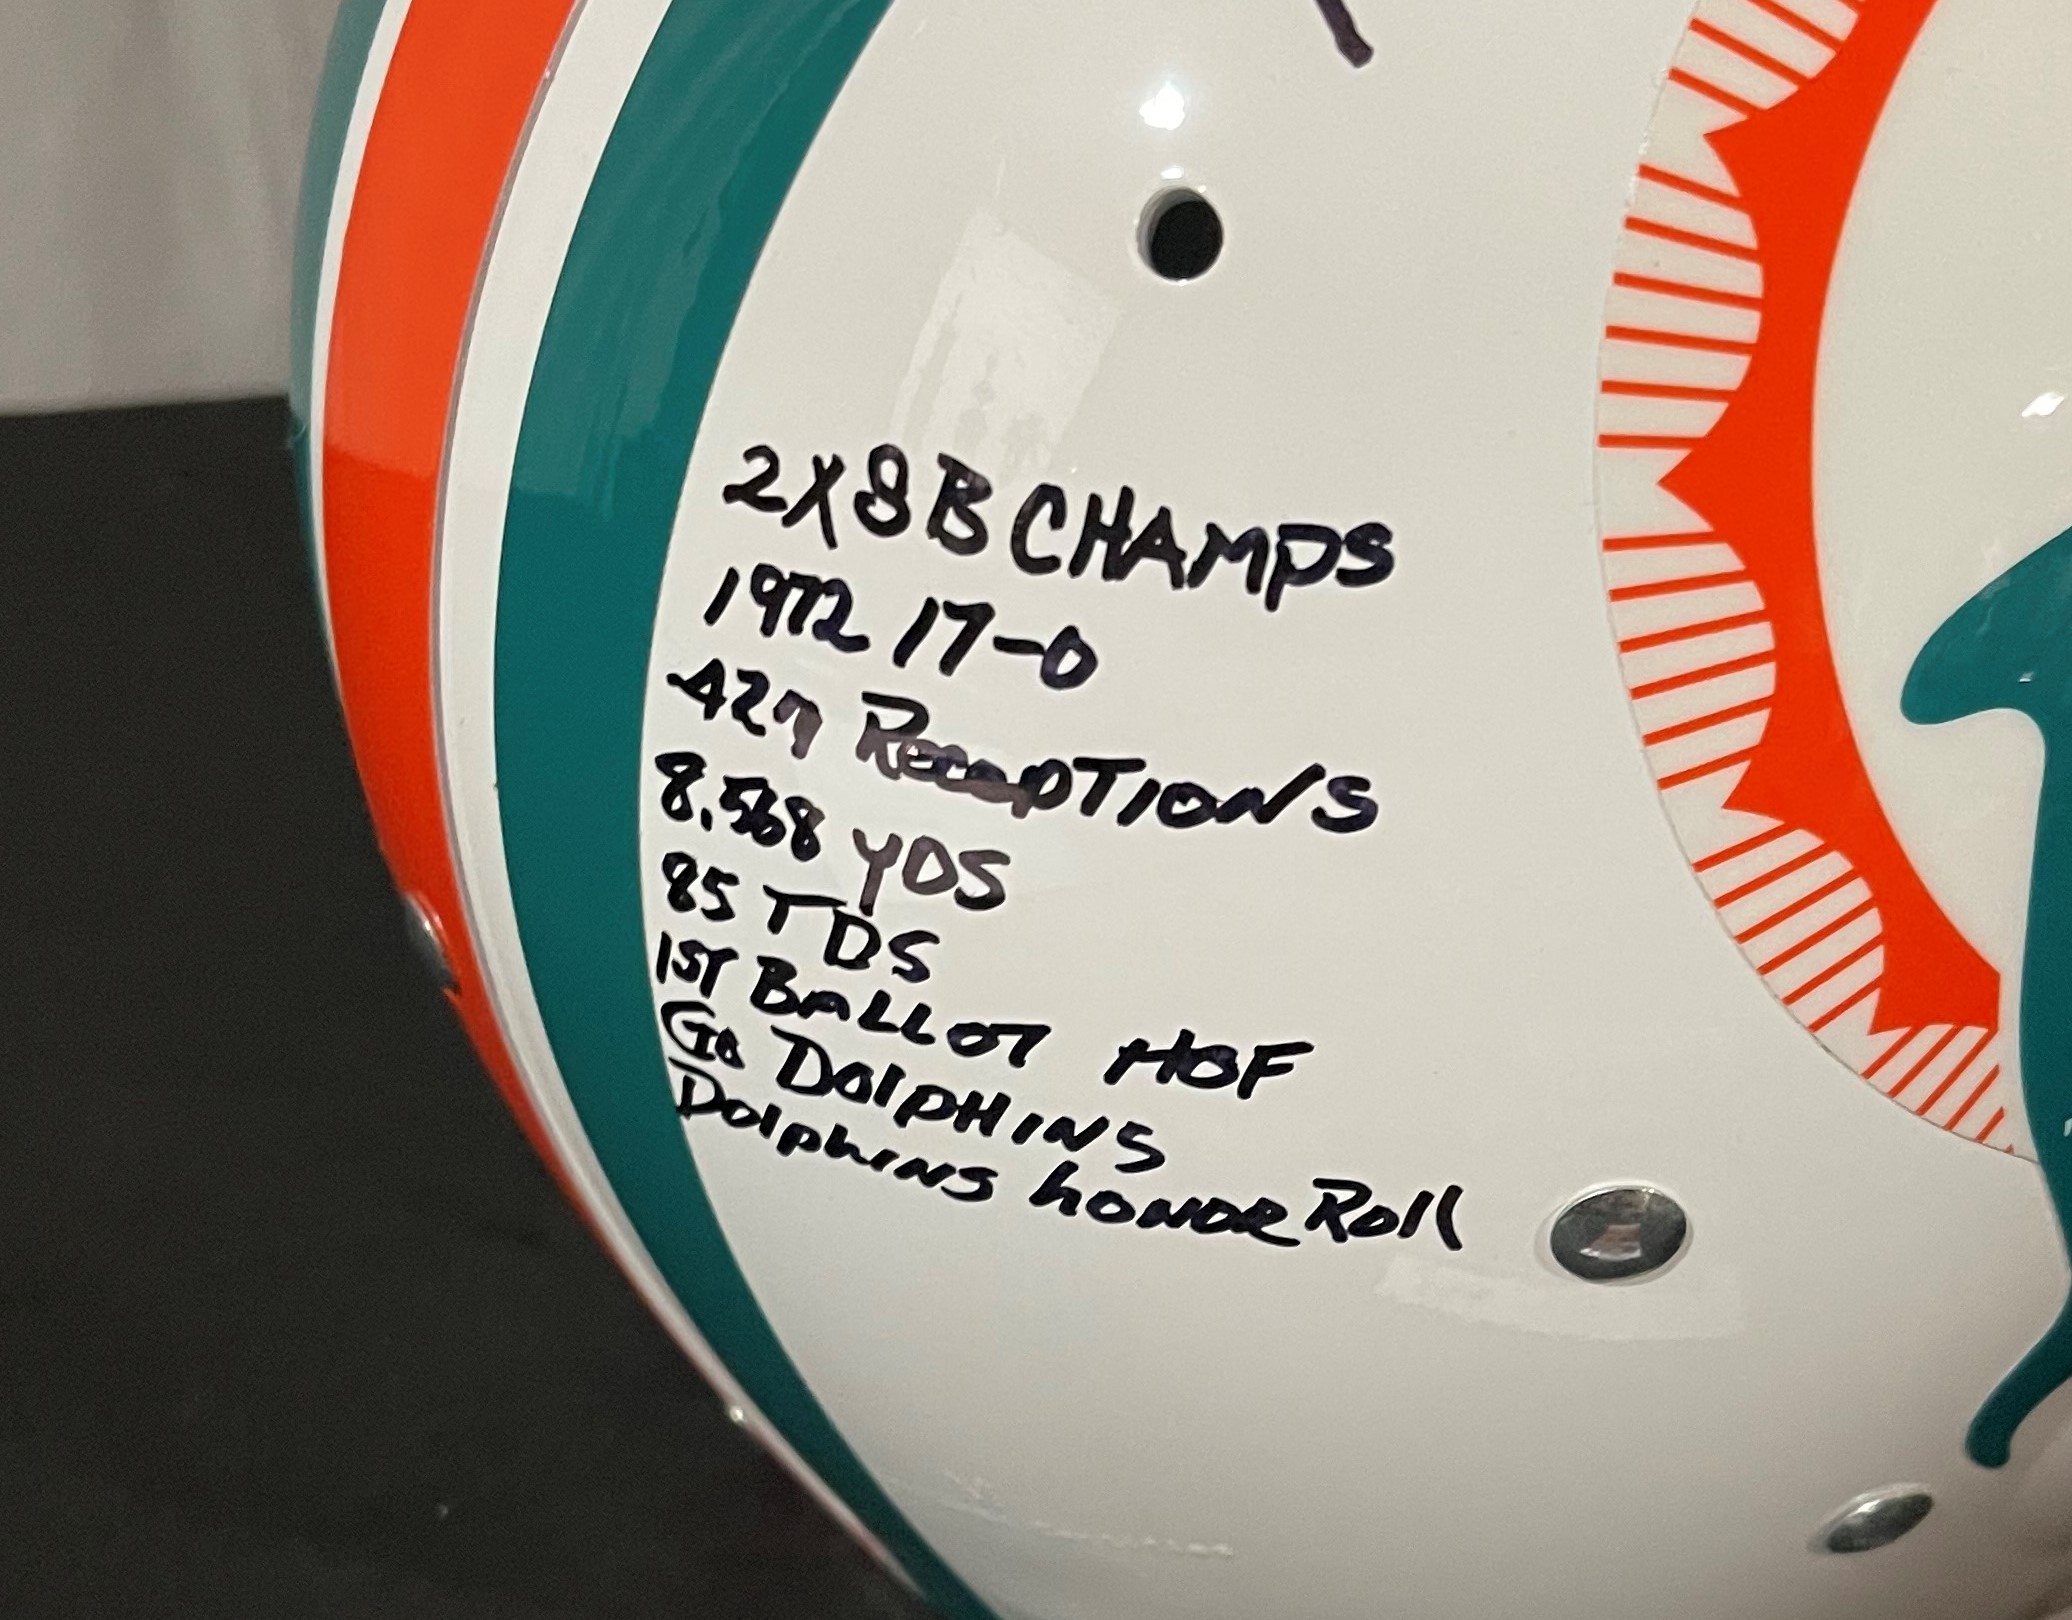 2X SB CHAMPS
1972 17-0
427 RecepTIONS
8,568 YDS
85 TDS
1ST BALLOT HOF
Go DolpHINS
DolphiNS honoR Roll